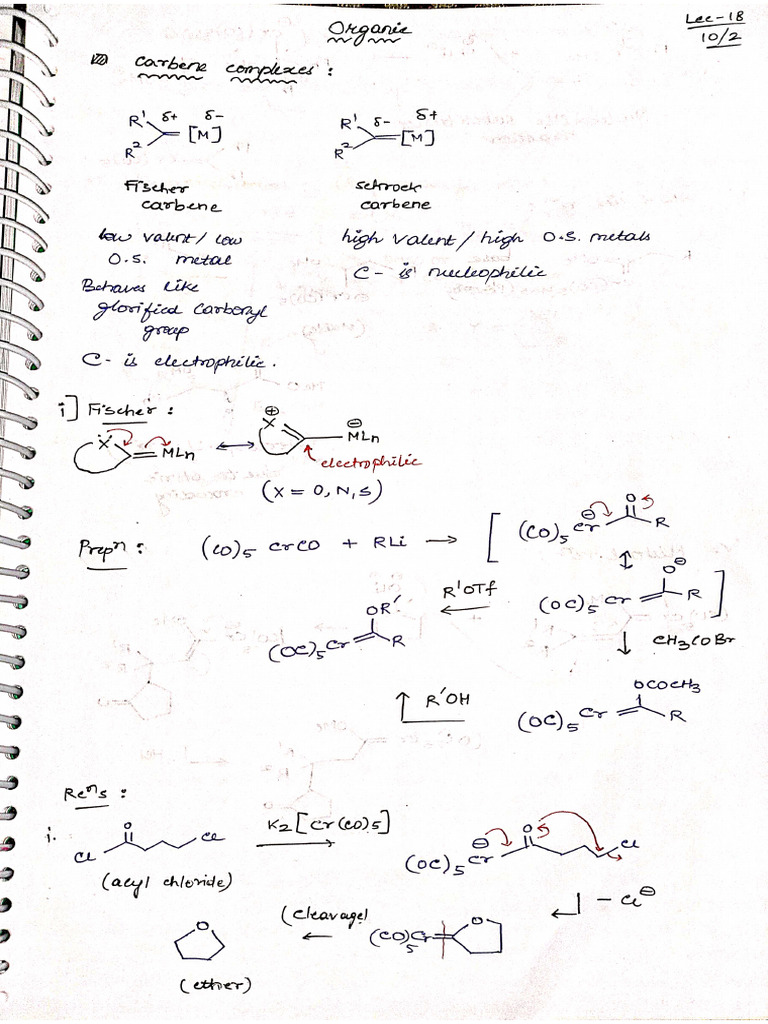 Organic
Lec-18
10/2
Carbene complexes :
R¹ δ+ δ-
R² =[M]
R¹ δ- δ+
R² =[M]
Fischer
carbene
Schrock
carbene
low valent/low
O.S. metal
high valent/high O.S. metals
C- is nucleophilic
Behaves like
glorified carbonyl
group
C- is electrophilic.
i] Fischer :
Ẍ =MLn ↔ ⊕ X ⊖ MLn
electrophilic
(X = O, N, S)
Prepⁿ : (CO)₅ CrCO + RLi → [ (CO)₅ Cr ⊖ O R
↕
(OC)₅ Cr O⊖ R ]
R'OTf ←
OR'
(OC)₅Cr R
↓ CH₃COBr
OCOCH₃
(OC)₅ Cr R
R'OH
Reⁿs :
i. O Cl Cl
K₂[Cr(CO)₅] →
⊖ O Cl
(OC)₅ Cr
(acyl chloride)
- Cl⊖
(CO)₅Cr O
(cleavage)
←
O
(ether)